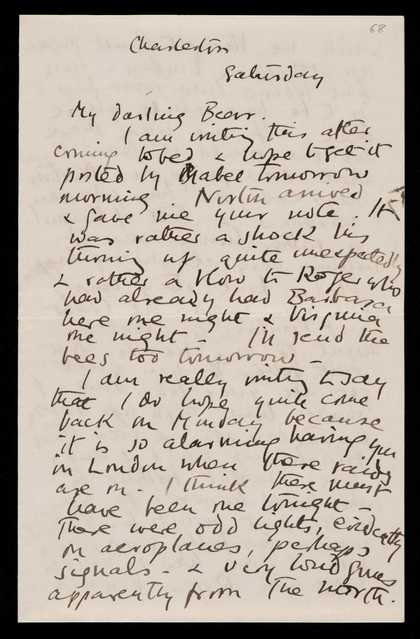 68
Charleston
Saturday
My darling Bear.
I am writing this after
coming to bed & hope to get it
posted by Mabel tomorrow
morning. Norton arrived
& gave me your note. It
was rather a shock his
turning up quite unexpectedly
& rather a blow to Roger who
had already had Barbara
here one night & Virginia
one night - I'll send the
bees too tomorrow -
I am really writing to say
that I do hope you'll come
back on Monday because
it is so alarming having you
in London when these raids
are on. I think there must
have been one tonight -
There were odd lights, evidently
on aeroplanes, perhaps
signals - & very loud guns
apparently from the north.